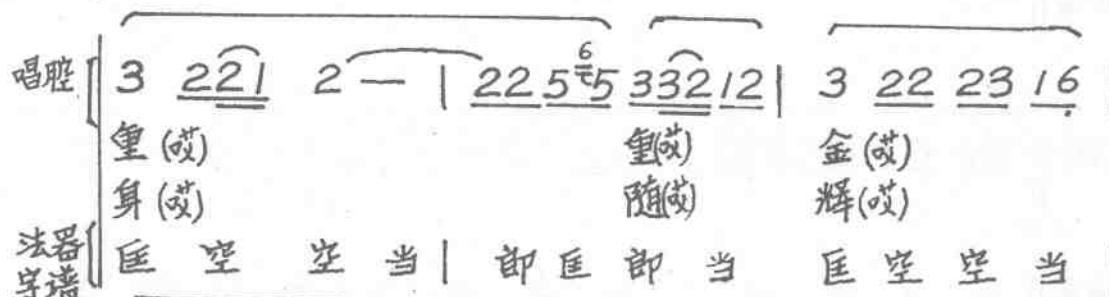 唱腔 3 221 2 — | 22 5 6 5 332 12 | 3 22 23 16
重(哎) 重(哎) 金(哎)
身(哎) 随(哎) 辉(哎)
法器字谱 匡 空 空 当 | 郎 匡 郎 当 匡 空 空 当